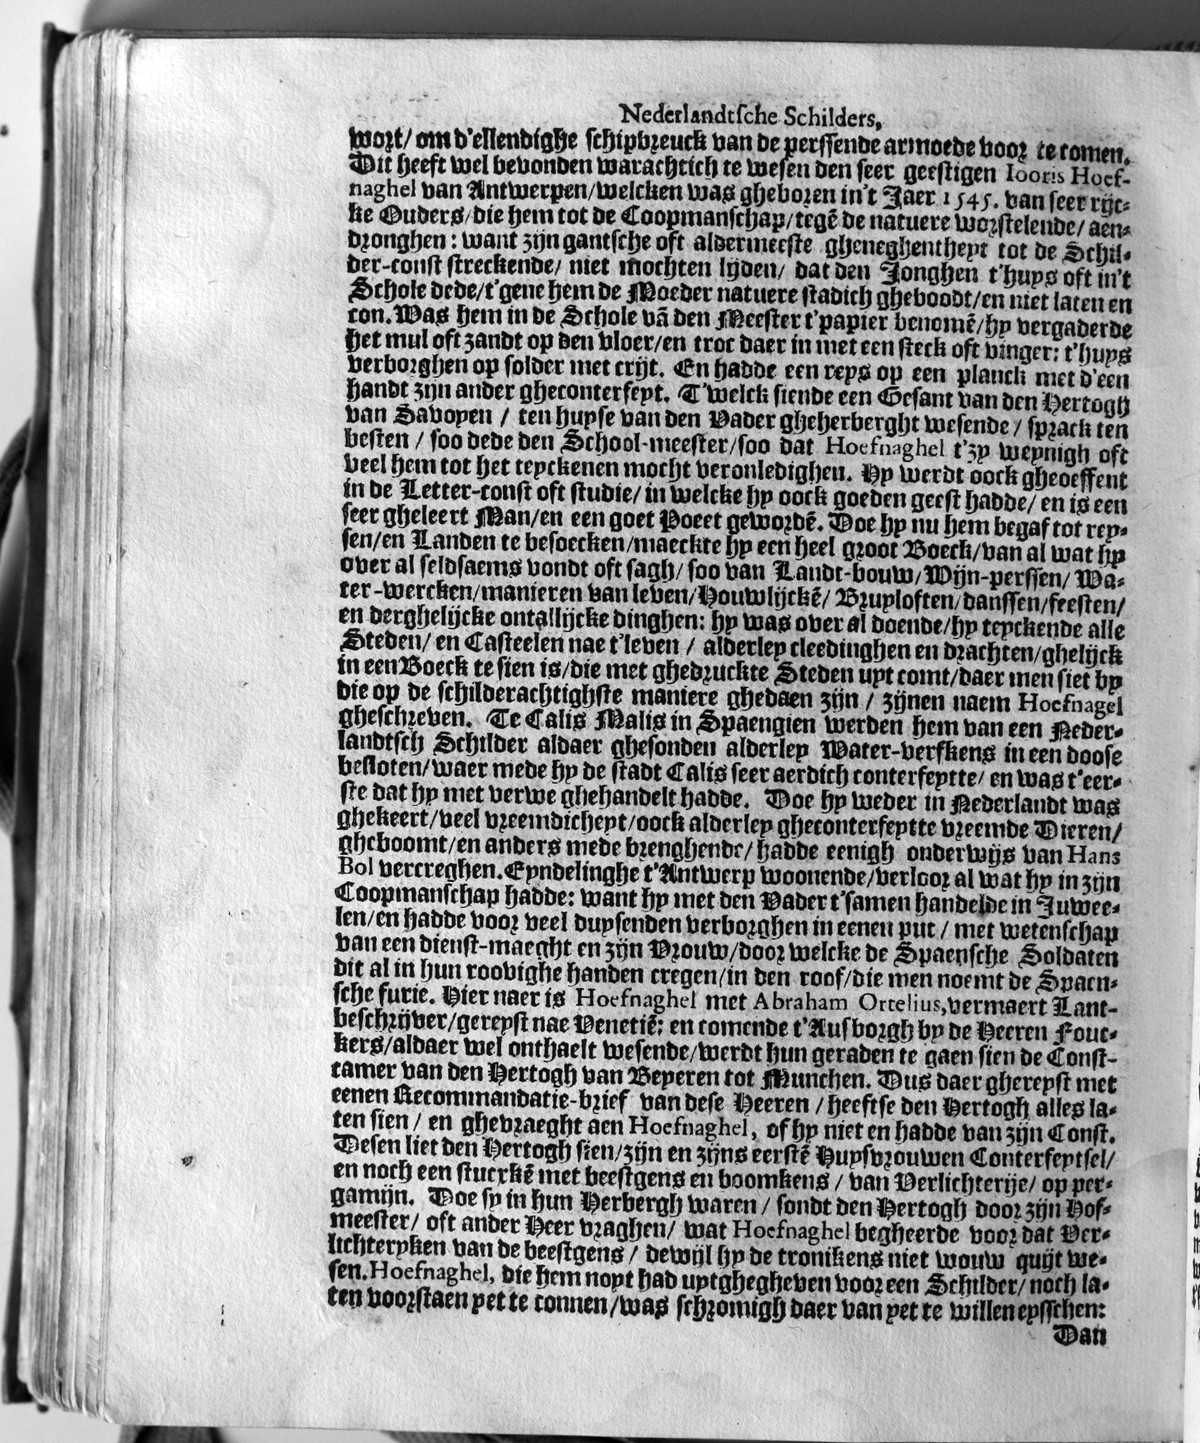 Nederlandtsche Schilders,
wort/ om d'ellendighe schipbreuck van de perssende armoede voor te comen.
Dit heeft wel bevonden warachtich te wesen den seer geestigen Iooris Hoef-
naghel van Antwerpen/welcken was gheboren in't Jaer 1545. van seer rijc-
ke Ouders/die hem tot de Coopmanschap/tegẽ de natuere worstelende/ aen-
dronghen: want zijn gantsche oft aldermeeste gheneghentheyt tot de Schil-
der-const streckende/ niet mochten lijden/ dat den Jonghen t'huys oft in't
Schole dede/t'gene hem de Moeder natuere stadich gheboodt/en niet laten en
con. Was hem in de Schole vã den Meester t'papier benomẽ/hy vergaderde
het mul oft zandt op den vloer/en troc daer in met een steck oft vinger: t'huys
verborghen op solder met crijt. En hadde eens op een planck met d'een
handt zijn ander gheconterfeyt. T'welck siende een Gesant van den Hertogh
van Savoyen / ten huyse van den Vader gheherberght wesende / sprack ten
besten / soo dede den School-meester/soo dat Hoefnaghel t'zy weynigh oft
veel hem tot het teyckenen mocht veronledighen. Hy werdt oock gheoeffent
in de Letter-const oft studie/ in welcke hy oock goeden geest hadde/ en is een
seer gheleert Man/en een goet Poeet gewordẽ. Doe hy nu hem begaf tot rey-
sen/en Landen te besoecken/maeckte hy een heel groot Boeck/van al wat hy
over al seldsaems vondt oft sagh/ soo van Landt-bouw/Wijn-perssen/ Wa-
ter-wercken/manieren van leven/Houwlijckẽ/ Bruyloften/danssen/feesten/
en derghelijcke ontallijcke dinghen: hy was over al doende/hy teyckende alle
Steden/ en Casteelen nae t'leven / alderley cleedinghen en drachten/ghelijck
in een Boeck te sien is/die met ghedruckte Steden uyt comt/daer men siet by
die op de schilderachtighste maniere ghedaen zijn / zijnen naem Hoefnagel
gheschreven. Te Calis Malis in Spaengien werden hem van een Neder-
landtsch Schilder aldaer ghesonden alderley Water-verfkens in een doose
besloten/waer mede hy de stadt Calis seer aerdich conterfeytte/ en was t'eer-
ste dat hy met verwe ghehandelt hadde. Doe hy weder in Nederlandt was
ghekeert/veel vreemdicheyt/oock alderley gheconterfeytte vreemde Dieren/
gheboomt/en anders mede brenghende/ hadde eenigh onderwijs van Hans
Bol vercreghen. Eyndelinghe t'Antwerp woonende/verloor al wat hy in zijn
Coopmanschap hadde: want hy met den Vader t'samen handelde in Juwee-
len/en hadde voor veel duysenden verborghen in eenen put / met wetenschap
van een dienst-maeght en zijn Vrouw/door welcke de Spaensche Soldaten
dit al in hun roovighe handen cregen/in den roof/die men noemt de Spaen-
sche furie. Hier naer is Hoefnaghel met Abraham Ortelius,vermaert Lant-
beschrijver/gereyst nae Venetiẽ: en comende t'Ausborgh by de Heeren Fouc-
kers/aldaer wel onthaelt wesende/werdt hun geraden te gaen sien de Const-
camer van den Hertogh van Beyeren tot Munchen. Dus daer ghereyst met
eenen Recommandatie-brief van dese Heeren / heeftse den Hertogh alles la-
ten sien / en ghevraeght aen Hoefnaghel, of hy niet en hadde van zijn Const.
Desen liet den Hertogh sien/zijn en zijns eerstẽ Huysvrouwen Conterfeytsel/
en noch een stucxkẽ met beestgens en boomkens / van Verlichterije/ op per-
gamijn. Doe sy in hun Herbergh waren / sondt den Hertogh door zijn Hof-
meester/ oft ander Heer vraghen/ wat Hoefnaghel begheerde voor dat Ver-
lichteryken van de beestgens / dewijl hy de tronikens niet wouw quijt we-
sen. Hoefnaghel, die hem noyt had uytghegheven voor een Schilder/ noch la-
ten voorstaen yet te connen/was schromigh daer van yet te willen eysschen:
Dan